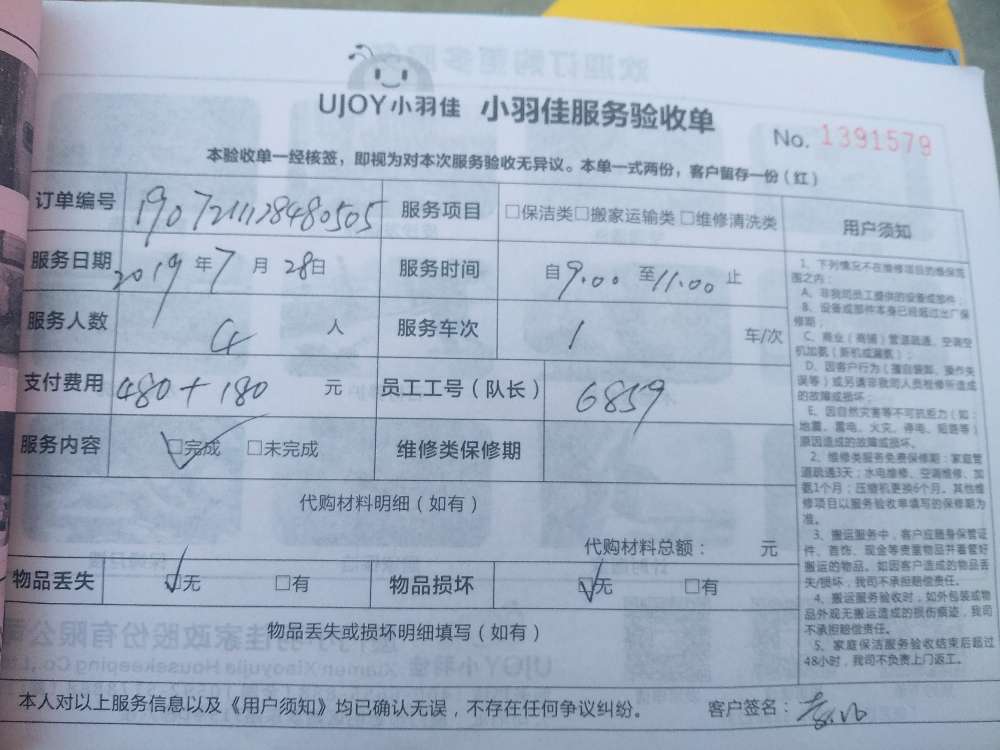 UJOY小羽佳 小羽佳服务验收单
No. 1391579
本验收单一经核签，即视为对本次服务验收无异议。本单一式两份，客户留存一份（红）
订单编号 190721128480505 服务项目 □保洁类□搬家运输类 □维修清洗类
服务日期 2019年7月28日 服务时间 自9.00至11.00止
服务人数 4人 服务车次 1 车/次
支付费用 480+180 元 员工工号（队长） 6859
服务内容 □完成 □未完成 维修类保修期
代购材料明细（如有）
代购材料总额： 元
物品丢失 □无 □有 物品损坏 □无 □有
物品丢失或损坏明细填写（如有）
用户须知
1、下列情况不在维修项目的维保范
围之内：
A、非我司员工提供的设备或部件；
B、设备或部件本身已经超过出厂保
修期；
C、商业（商铺）管道疏通、空调空
机加氨（新机或漏氨）；
D、因客户行为（擅自装卸、操作失
误等）或另请非我司人员检修所造成
的故障或损坏；
E、因自然灾害等不可抗拒力（如：
地震、雷电、火灾、停电、短路等）
原因造成的故障或损坏。
2、维修类服务免费保修期：家庭管
道疏通3天；水电维修、空调维修、加
氨1个月；压缩机更换6个月。其他维
修项目以服务验收单填写的保修期为
准。
3、搬运服务中，客户应随身保管证
件、首饰、现金等贵重物品并看管好
搬运的物品。如因客户造成的物品丢
失/损坏，我司不承担赔偿责任。
4、搬运服务验收时，如外包装或物
品外观无搬运造成的损伤痕迹，我司
不承担赔偿责任。
5、家庭保洁服务验收结束后超过
48小时，我司不负责上门返工。
本人对以上服务信息以及《用户须知》均已确认无误，不存在任何争议纠纷。 客户签名：